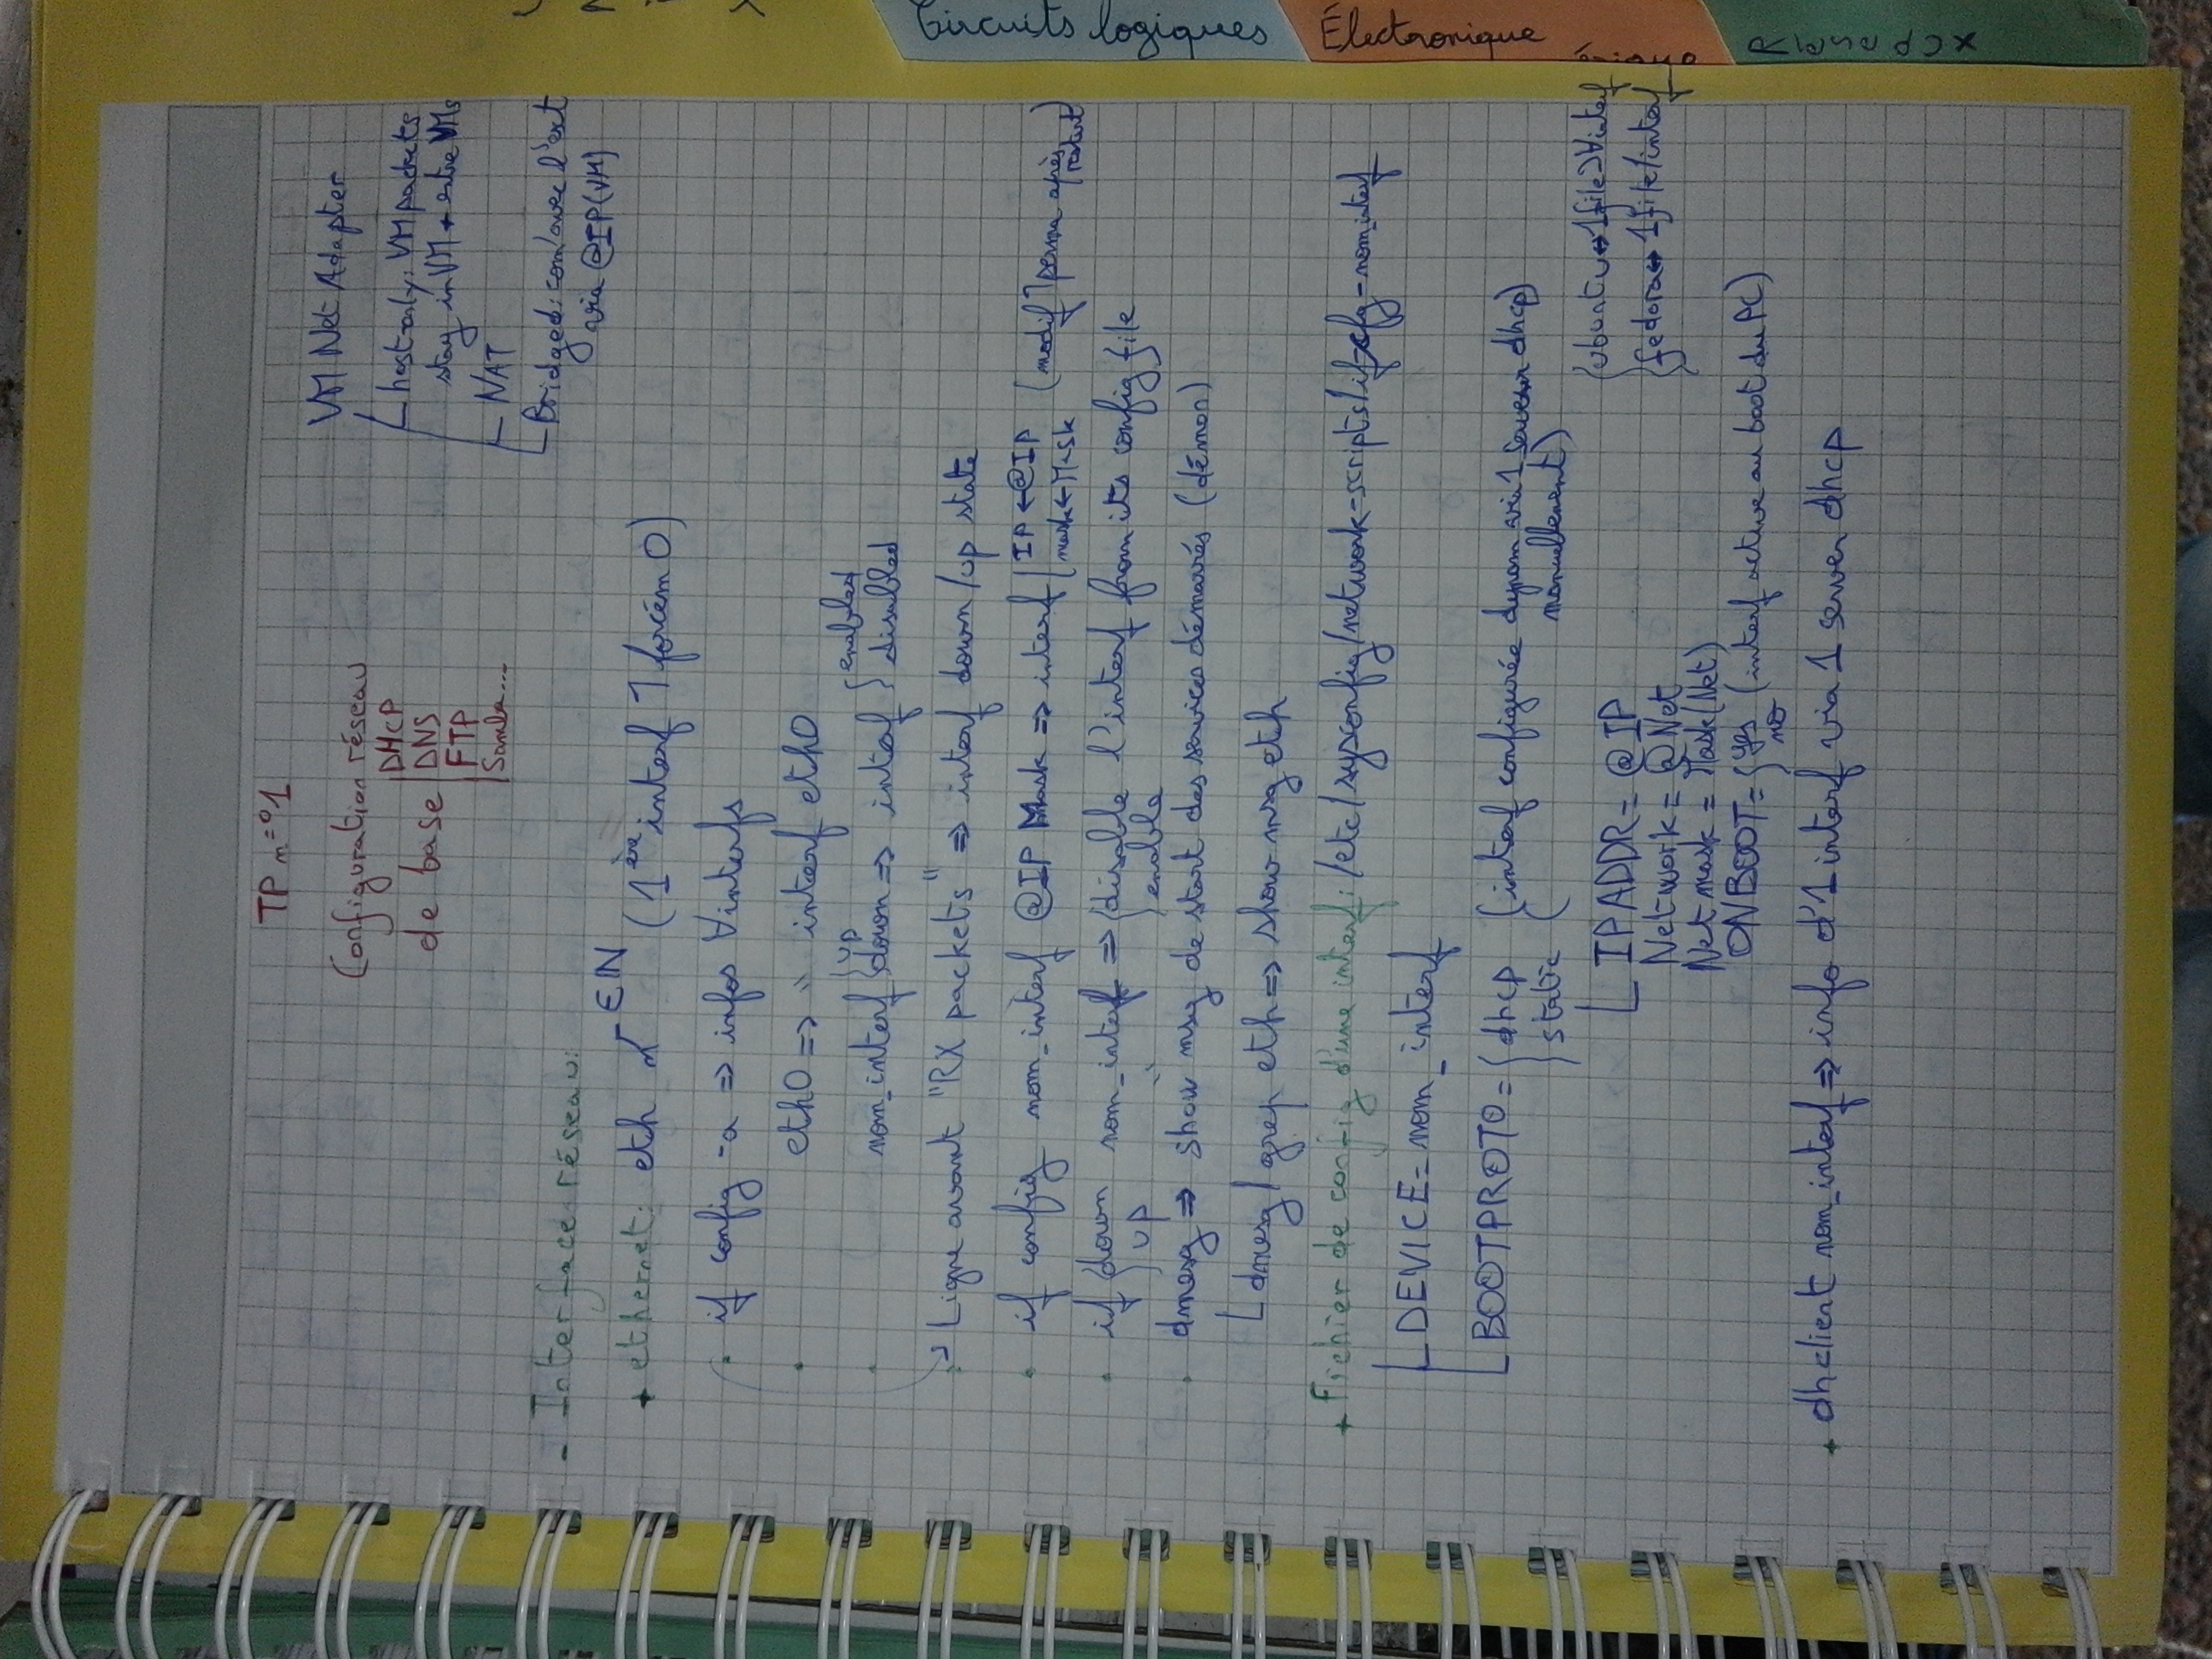 TP n=°1
Configuration réseau
de base
DHCP
DNS
FTP
Samba...
VM Net Adapter
host-only: VM packets
stay in VM + entre VMs
NAT
Bridged: com' avec l'ext
via @IP(VM)
- Interface réseau:
+ ethernet: eth n EIN (1ère interf ˥ forcém 0)
. if config -a => infos ∀interfs
. eth0 => " interf eth0
up enabled
. nom_interf {down => interf { disabled
. Ligne avant "RX packets" => interf down/up state
. if config nom_interf @IP Mask => interf | IP ← @IP (modif ˥ perma après
mask ← Mask restart)
. if {down nom_interf => {disable l'interf from its config file
up " enable
. dmesg => show msg de start des services démarrés (démon)
dmesg | grep eth => show msg eth
+ Fichier de config d'une interf: /etc/sysconfig/network-scripts/if-cfg-nom_interf
DEVICE = nom_interf
BOOTPROTO = { dhcp (interf configurée dynam via 1 serveur dhcp)
static ( manuellement)
IPADDR = @IP
Network = @Net
Netmask = Mask(Net)
ONBOOT = {yes (interf active au boot du PC)
no
ubuntu ↔ 1 file ∋ ∀interf
fedora ↔ 1 file/interf
+ dhclient nom_interf => info d'1 interf via 1 server dhcp
Circuits logiques
Électronique
Réseaux